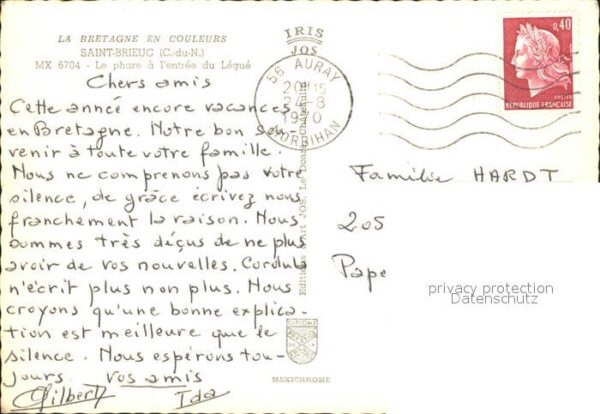 LA BRETAGNE EN COULEURS
SAINT-BRIEUC (C.-du-N.)
MX 6704 - Le phare à l'entrée du Légué
IRIS
JOS
56 AURAY
20H15
24-8
1970
MORBIHAN
0,40
REPUBLIQUE FRANÇAISE
Chers amis
Cette année encore vacances
en Bretagne. Notre bon sou-
venir à toute votre famille.
Nous ne comprenons pas votre
silence, de grâce écrivez nous
franchement la raison. Nous
sommes très déçus de ne plus
avoir de vos nouvelles. Cordula
n'écrit plus non plus. Nous
croyons qu'une bonne explica-
tion est meilleure que le
silence. Nous espérons tou-
jours. vos amis
Gilbert Ida
Familie HARDT
205
Pape
privacy protection
Datenschutz
Editions d'art JOS, Le Doaré, Châteaulin
MEXICHROME